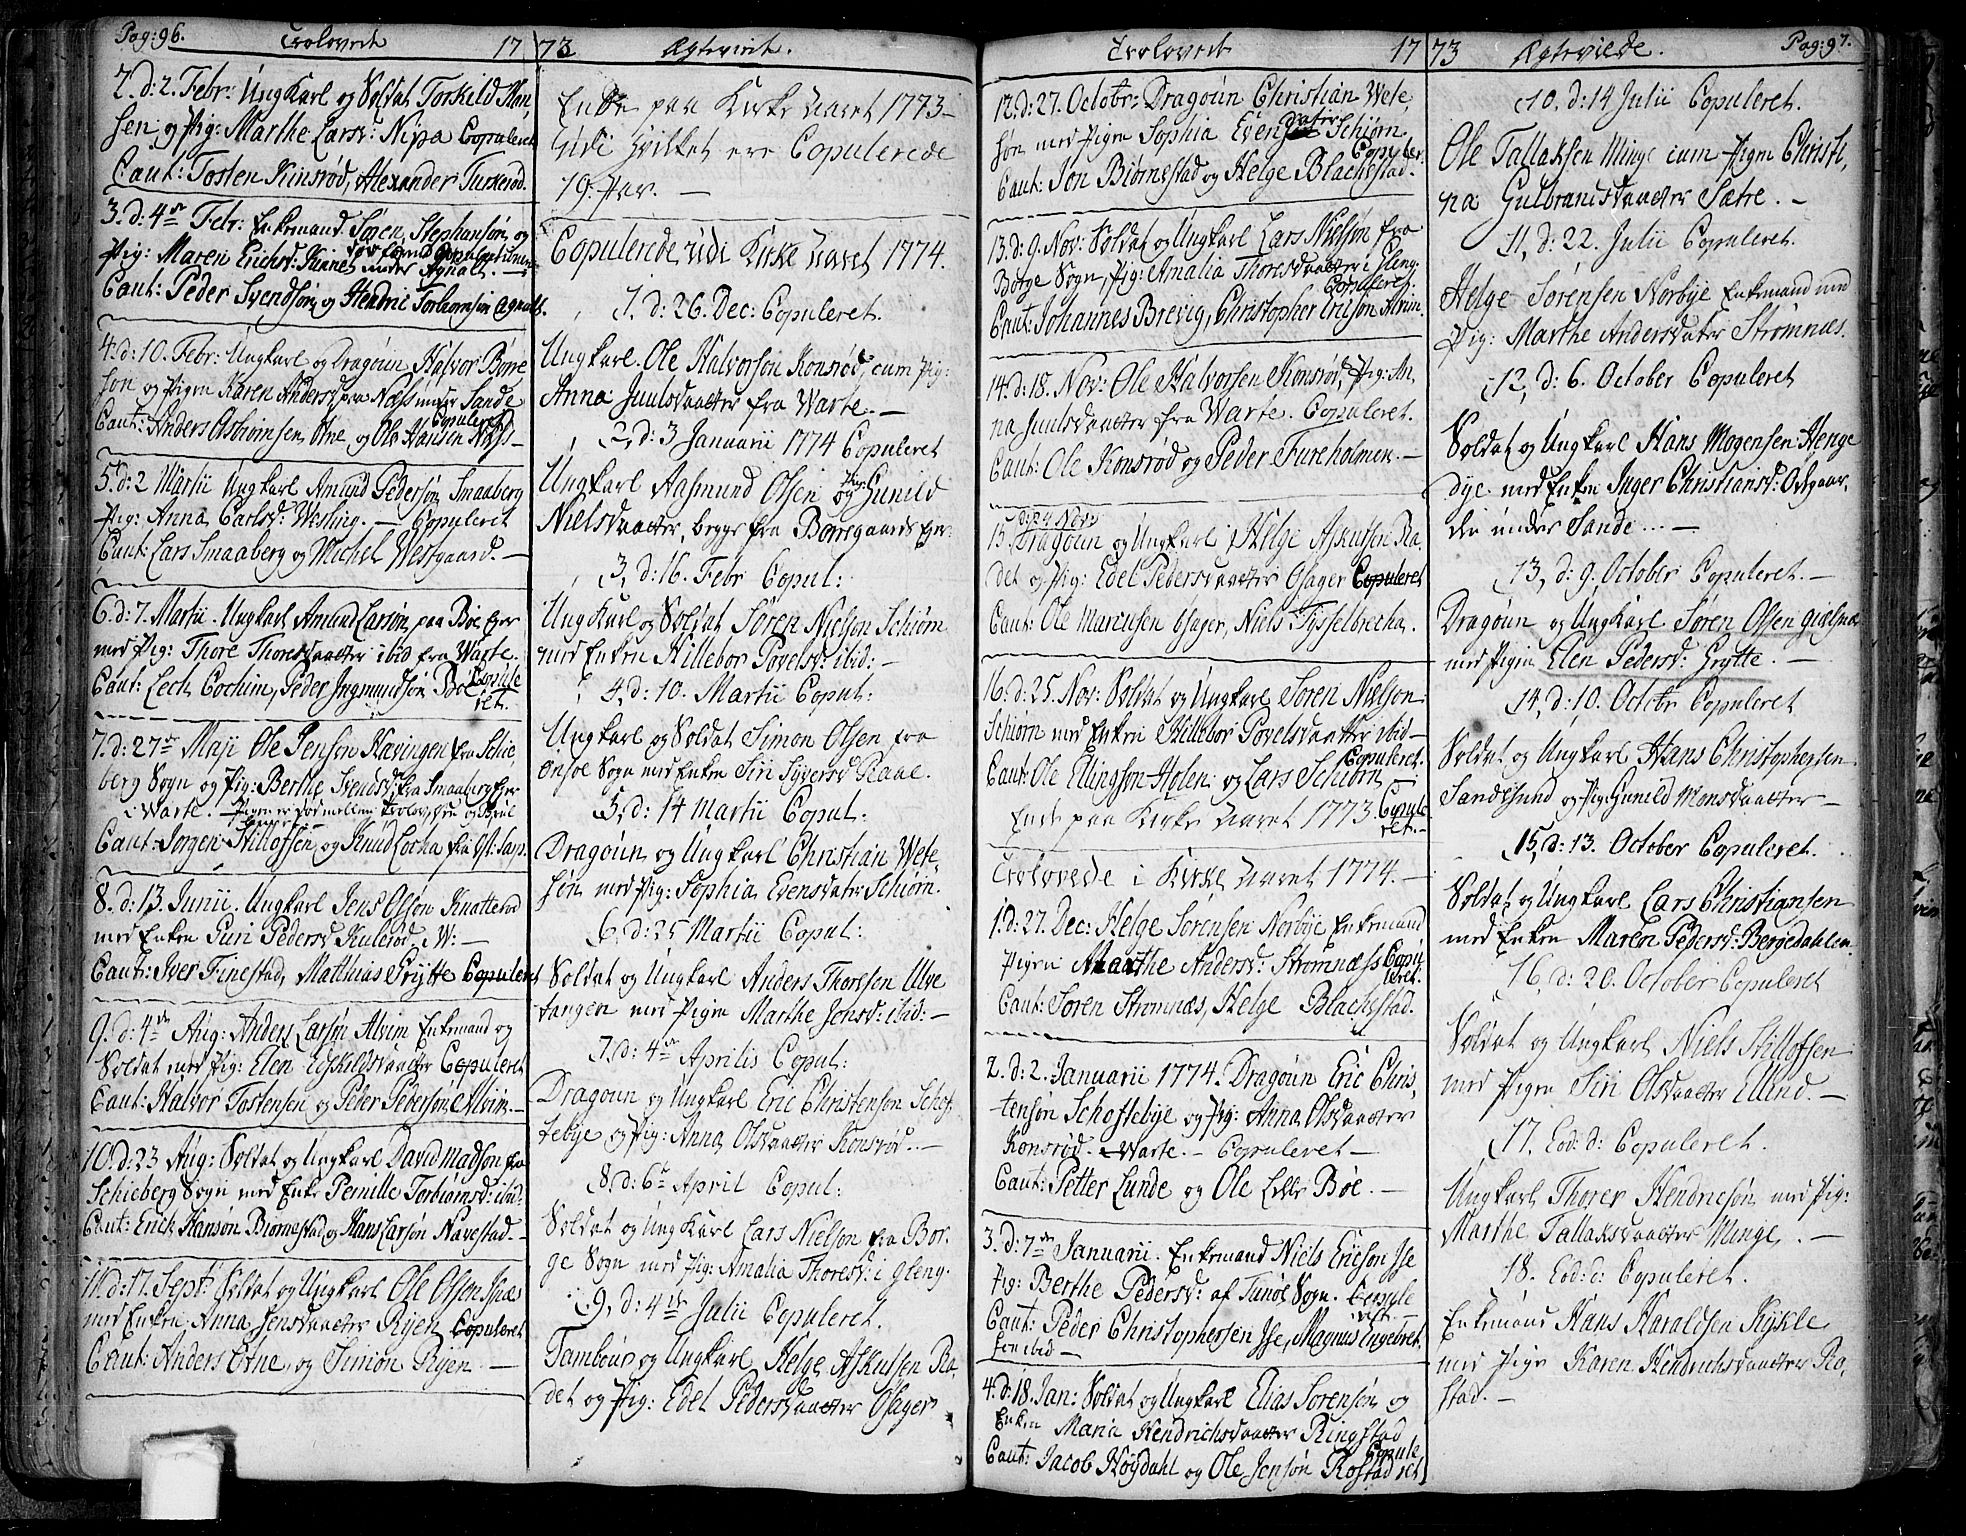 Pag: 96.
Trolovede 17
2. d: 2. Febr: Ungkarl og Soldat Torkild Han
sen og Pig: Marthe Larsd: Nipa Copuleret
Caut: Tosten Kinsrød, Alexander Turkerød.
3. d: 4de Febr: Enkemand Søren Stephansøn og
Pig: Maren Erichsd: Kinne under Agnalt.
Caut: Peder Svendsøn og Hendric Torbiomsøn Agnalt.
4. d: 10. Febr: Ungkarl og Dragoun Halvor Børre
søn og Pigen Karen Andersd: paa Næss under Sande
Copuleret
Caut: Anders Asbiomsen Orne, og Ole Hansen Næss
5. d: 2 Martii Ungkarl Amund Pedersøn Smaaberg
Pig: Anna Carlsd: Westing. — Copuleret
Caut: Lars Smaaberg og Michel Westgaard. —
6. d: 7. Martii. Ungkarl Amund Larsøn paa Boe Eger
med Pig: Thore Thoresdaatter ibid fra Warte.
Caut: Lech Cochim, Peder Ingmundsøn Boe Copule
ret.
7. d: 27de Maji Ole Jensøn Havingen fra Schie
berg Sogn og Pig: Berthe Svendsd: fra Smaaberg Eger
Warte.
Caut: Jørgen Stilloffsen og Knud Locha
8. d: 13. Junii. Ungkarl Jens Olsøn Knatterød
med Enken Guri Pedersd Kulerød W: —
Caut: Iver Finestad, Matthias Grytte Copuleret
9. d: 4de Aug: Anders Larsøn Alvim Enkemand og
Soldat med Pig: Elen Eskildsdaatter Copuleret
Caut: Halvor Tostensen og Peder Pedersøn Alvim. —
10. d: 23 Aug: Soldat og Ungkarl David Madsøn fra
Schieberg Sogn med Enke Pernille Torbiømsd: ibid:
Caut: Erick Hansøn Biørnestad og Hans Larsøn Navestad. —
11. d: 17. Sept: Soldat og Ungkarl Ole Olsen
med Enken Anna Jensdaatter Ryen Copuleret
Caut: Anders Orne, og Simon Ryen. —
73 Ægteviede.
Ende paa Kirke Aaret 1773 —
Udi hvilket ere Copulerede
19. Par. —
Copulerede udi Kirke Aaret 1774.
1. d: 26. Dec: Copuleret.
Ungkarl. Ole Halvorsøn Konsrød, cum Pig:
Anna Juulsdaatter fra Warte. —
2, d: 3 Januarii 1774 Copuleret
Ungkarl Aasmund Olsen og Pig: Gunild
Nielsdaatter, begge fra Borregaards Eger
3, d: 16. Febr Copul:
Ung Karl og Soldat Søren Nielsøn Schiørn
med Enken Hillebor Povelsd: ibid: —
4, d: 10. Martii Copul:
Ungkarl og Soldat Simon Olsen fra
Onsøe Sogn med Enken Siri Syversd Raae.
5, d: 14 Martii Copul:
Dragoun og Ungkarl Christian Wete
søn med Pig: Sophia Evensdater Schiørn.
6, d: 25 Martii Copul:
Soldat og Ungkarl Anders Thoresen Ulve
tangen med Pigen Marthe Jonsd: ibid: —
7. d: 4de Aprilis Copul:
Dragoun og Ungkarl Eric Christensøn Schof
tebye og Pig: Anna Olsdaatter Konsrød. —
8. d: 6te April Copul:
Soldat og Ung Karl Lars Nielsøn fra Bor
ge Sogn med Pig: Amalia Thoresd: i Gleng.
9, d: 4de Julii Copuleret.
Tambour og Ungkarl Helge Askussen Ra
det og Pig: Edel Pedersdaatter Gsager
Trolovede 17
12. d: 27. Octobr: Dragoun Christian Wete
søn med Pigen Sophia Evensdater Schiørn
Copuler.
Caut: Jon Biørnestad og Helge Blachestad.
13. d: 9. Nov: Soldat og Ungkarl Lars Nielsøn fra
Borge Sogn, Pig: Amalia Thoresdaatter i Gleng.
Copuleret.
Caut: Johannes Brevig, Christopher Ericsøn Alvim.
14. d: 18. Nov: Ole Halvorsen Konsrød, Pig: An
na Juulsdaatter fra Warte. Copuleret.
Caut: Ole Konsrød og Peder Fureholmen. —
d: 24 Nov:
15. Dragoun og Ungkarl Helge Askussen Ra
det og Pig: Edel Pedersdaatter Gsager Copuleret
Caut: Ole Marcusen Gsager, Niels Tysselbrecha.
16. d: 25. Nov: Soldat og Ungkarl Søren Nielsøn
Schiørn med Enken Hillebor Povelsdaatter ibid —
Copuleret.
Caut: Ole Ellingsøn Holen og Lars Schiørn
Ende paa Kirke Aaret 1773. Copule
ret. —
Trolovede i Kirke Aaret 1774. —
1. d: 27. Dec: Helge Sørensen Norbye Enkemand
Pigen Marthe Andersd: Strømnæss Copu
leret.
Caut: Søren Strømnæs, Helge Blachestad.
2. d: 2. Januarii 1774. Dragoun Eric Chris
tensøn Schoftebye og Pig: Anna Olsdaatter
Konsrød. Warte. — Copuleret —
Caut: Petter Lunde og Ole Lille Bøe. —
3. d: 7de Januarii. Enkemand Niels Ericsøn Jse
Pig: Berthe Pedersd: af Tunøe Sogn. Copule
ret. —
Caut: Peder Christophersen Jse, Magnus Engebret
søn ibid —
4. d: 18. Jan: Soldat og Ungkarl Elias Sørensøn og
Enken Maria Hendrichsdaatter Ringstad
Caut: Jacob Høydahl og Ole Jensøn Rostad Copule
ret
73 Ægteviede. Pag: 97.
10. d: 14 Julii Copuleret.
Ole Tallaksen Minge cum Pigen Christi
na Gulbrandsdaatter Sætre. —
11, d: 22. Julii Copuleret.
Helge Sørensen Norbye Enkemand med
Pig: Marthe Andersdater Strømnæs.
12, d: 6. October Copuleret
Soldat og Ungkarl Hans Mogensen Henge
dye med Enken Inger Christiansd: Odsgaar
den under Sande. —
13, d: 9. October Copuleret. —
Dragoun og Ungkarl Søren Olsen
med Pigen Elen Pedersd: Grytte. —
14, d: 10. Octobr Copuleret
Soldat og Ungkarl Hans Christophersen
Sandesund og Pig: Gunild Monsdaatter —
15, d: 13. October Copuleret.
Soldat og Ungkarl Lars Christiansen
med Enken Maren Pedersd: Bergedahlen
16, d: 20. October Copuleret
Soldat og Ungkarl Niels Stilloffsen
med Pigen Siri Olsdaatter Ellend. —
17. Eod: d: Copuleret
Ungkarl Thorer Hendricsøn med Pig:
Marthe Tallaksdaatter Minge. —
18. Eod: d: Copuleret.
Enkemand Hans Haraldsen Kykle
med Pige Karen Hendrichsdaatter Ro
stad. —